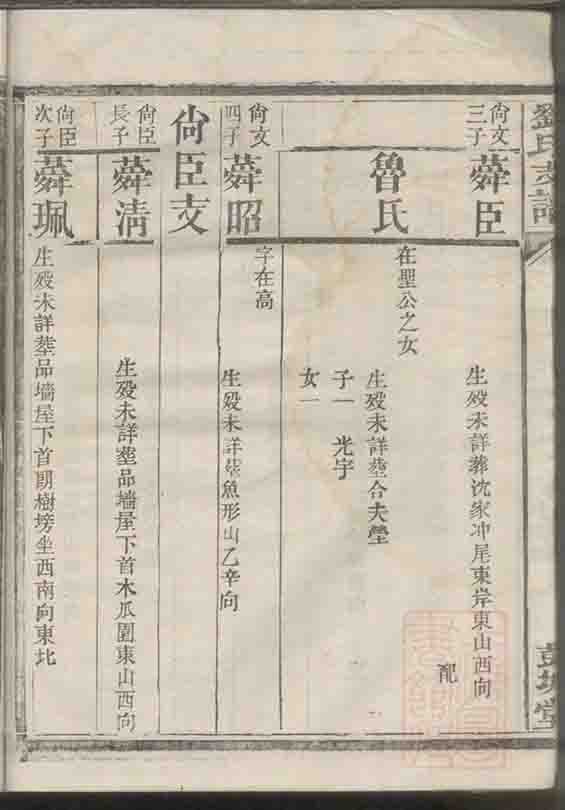 劉氏支譜
彭城堂
尙文三子
蕣臣
生歿未詳葬沈家冲尾東岸東山西向
配
魯氏
在聖公之女
生歿未詳塟合夫塋
子一 光宇
女一
尙文四子
蕣昭
字在高
生歿未詳塟魚形山乙辛向
尙臣支
尙臣長子
蕣淸
生歿未詳塟品墻屋下首木瓜園東山西向
尙臣次子
蕣珮
生歿未詳塟品墻屋下首 樹塝坐西南向東北